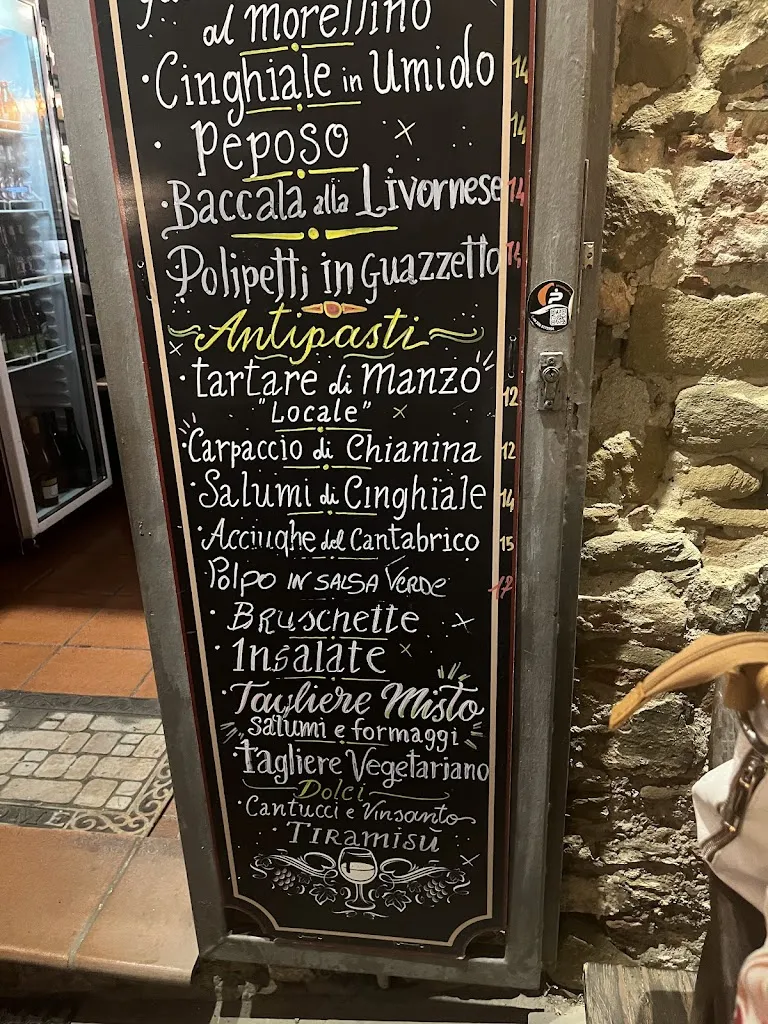 al Morellino
·Cinghiale in Umido 14
·Peposo 14
·Baccalà alla Livornese 14
·Polipetti in Guazzetto 14
Antipasti
·tartare di Manzo 12
"Locale"
·Carpaccio di Chianina 12
·Salumi di Cinghiale 14
·Acciughe del Cantabrico 15
Polpo in salsa Verde 17
·Bruschette
·Insalate
·Tagliere Misto
salumi e formaggi
·Tagliere Vegetariano
Dolci
·Cantucci e Vinsanto
·Tiramisù